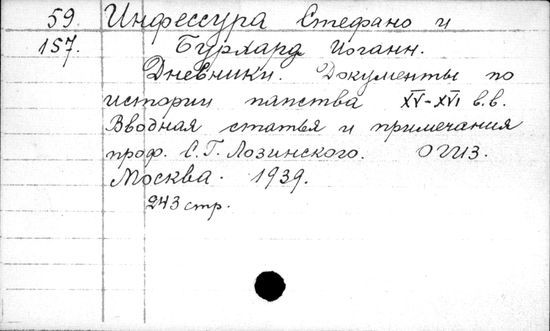 59. Инфессура Стефано и
157. Бурхард Иоганн.
Дневники. Документы по
истории папства XV-XVI в.в.
Вводная статья и примечания
проф. С.Г. Лозинского. ОГИЗ.
Москва. 1939.
243 стр.